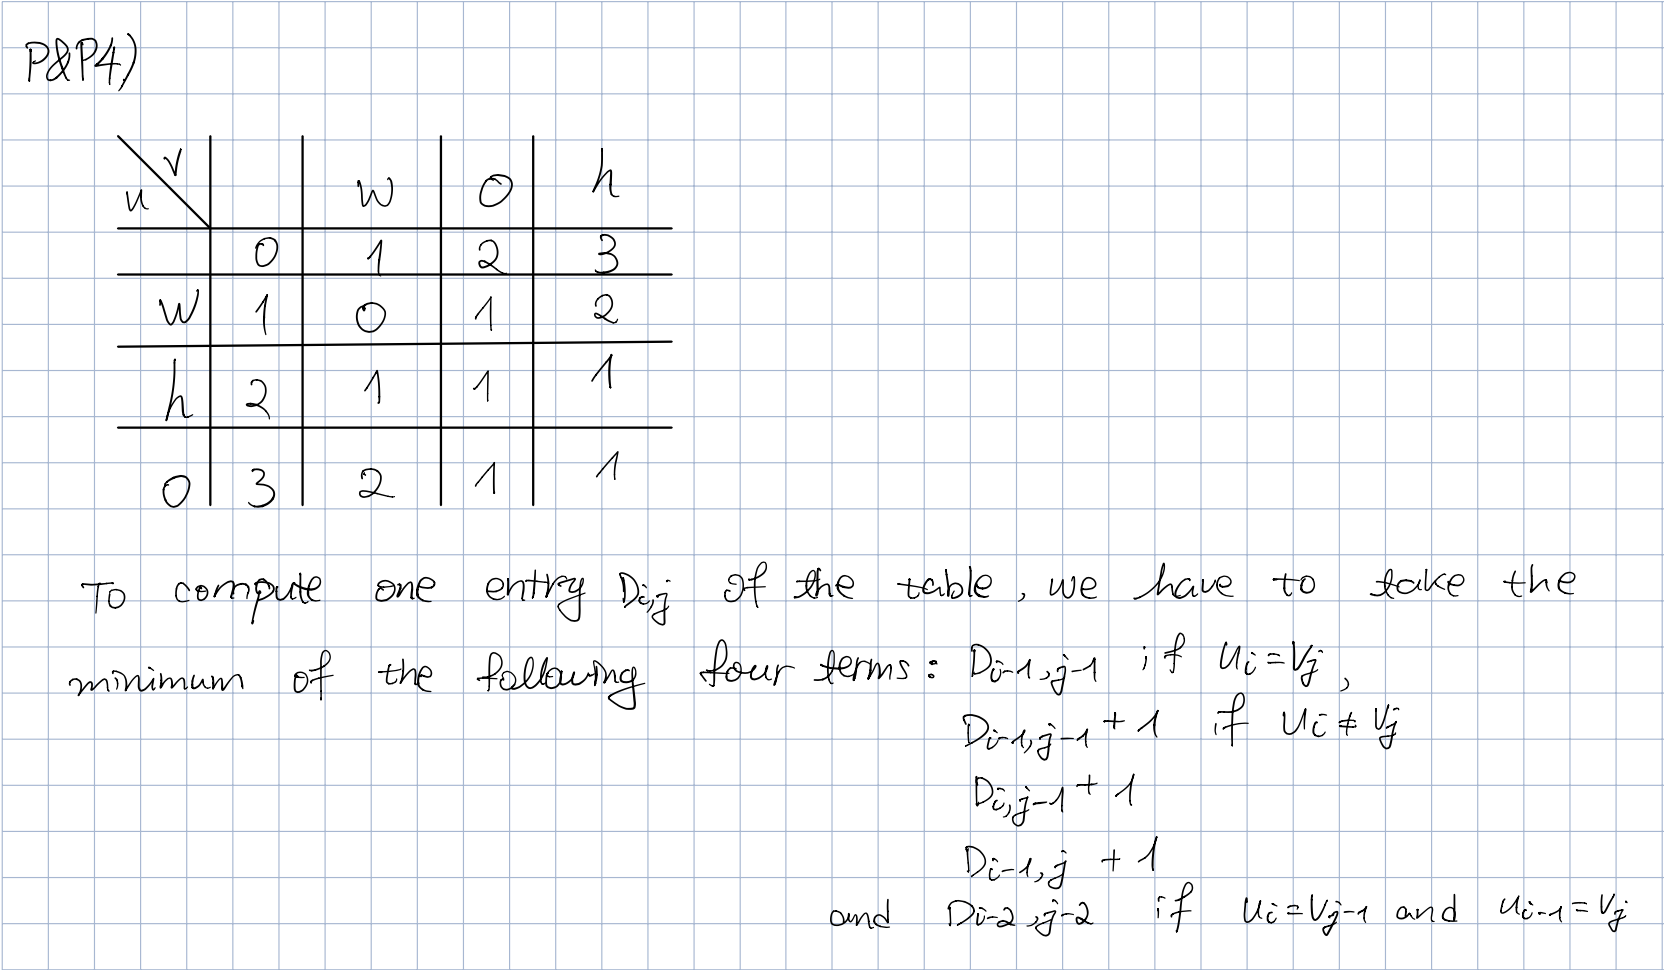 P&P4)
v
u
w o h
0 1 2 3
w 1 0 1 2
h 2 1 1 1
o 3 2 1 1
To compute one entry Di,j of the table, we have to take the
minimum of the following four terms: Di-1,j-1 if ui=vj,
Di-1,j-1 + 1 if ui ≠ vj
Di,j-1 + 1
Di-1,j + 1
and Di-2,j-2 if ui=vj-1 and ui-1=vj